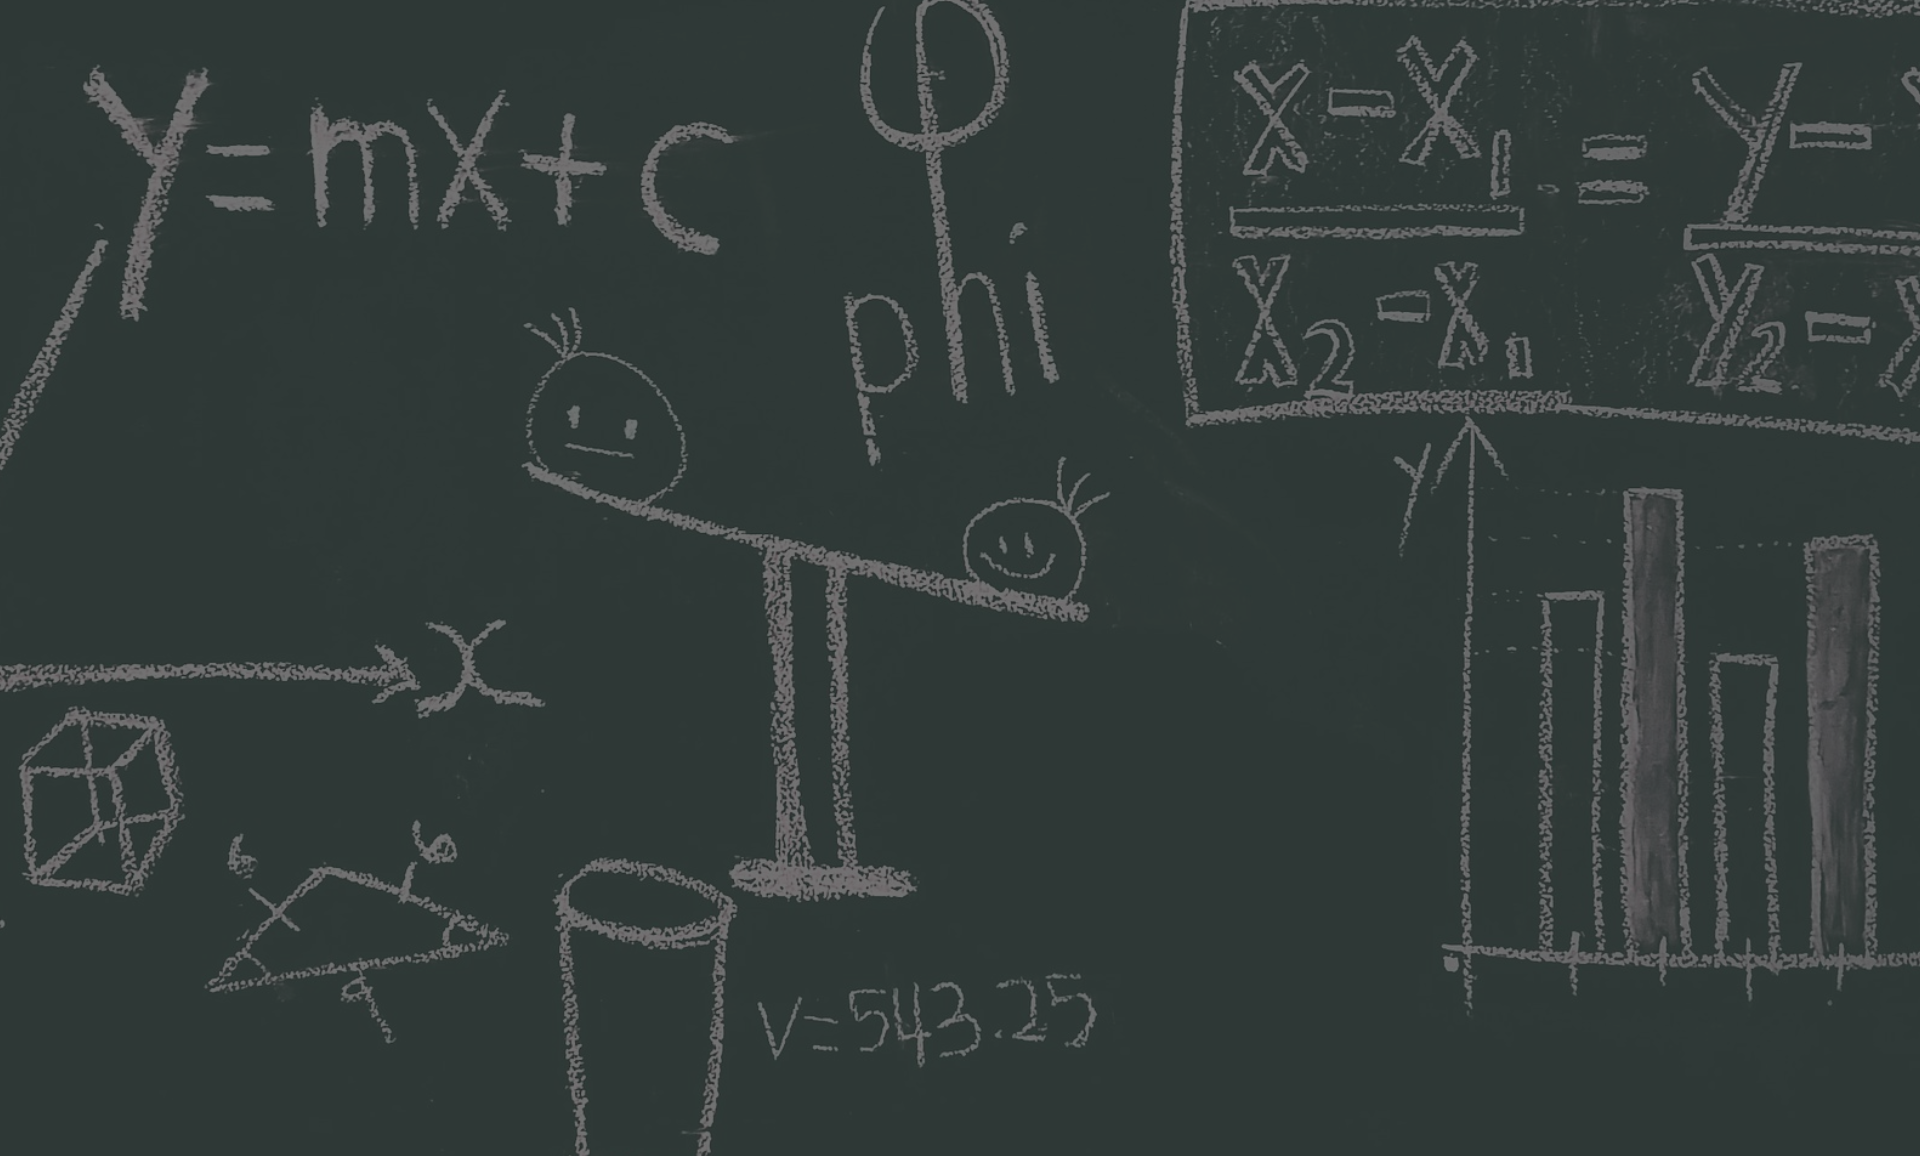 y=mx+c
φ
phi
x-x₁ = y-
x₂-x₁ y₂-
y
x
6 6
9
V=543.25